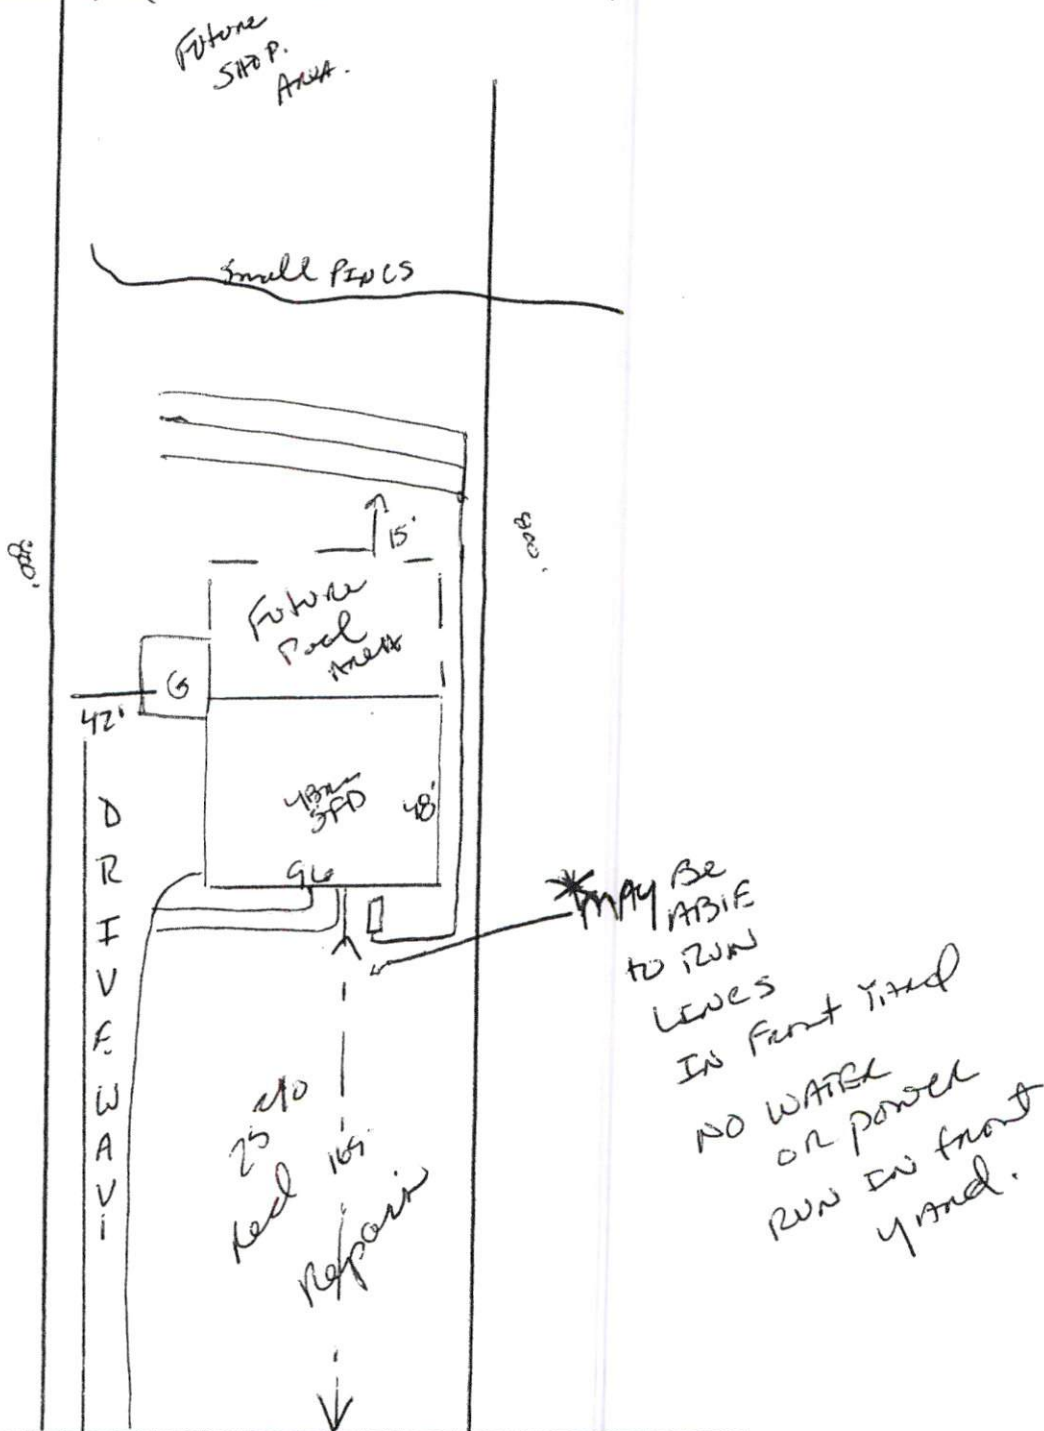 Future
SHOP.
AREA.
Small PINES
15'
800'
800'
Future
Pool
AREA
G
42'
4Brm
SFD
48'
96
DRIVEWAY
*MAY BE
ABlE
to RUN
LINES
IN Front Yard
NO WATER
OR power
RUN IN front
yard.
25%
Red
165'
Repair